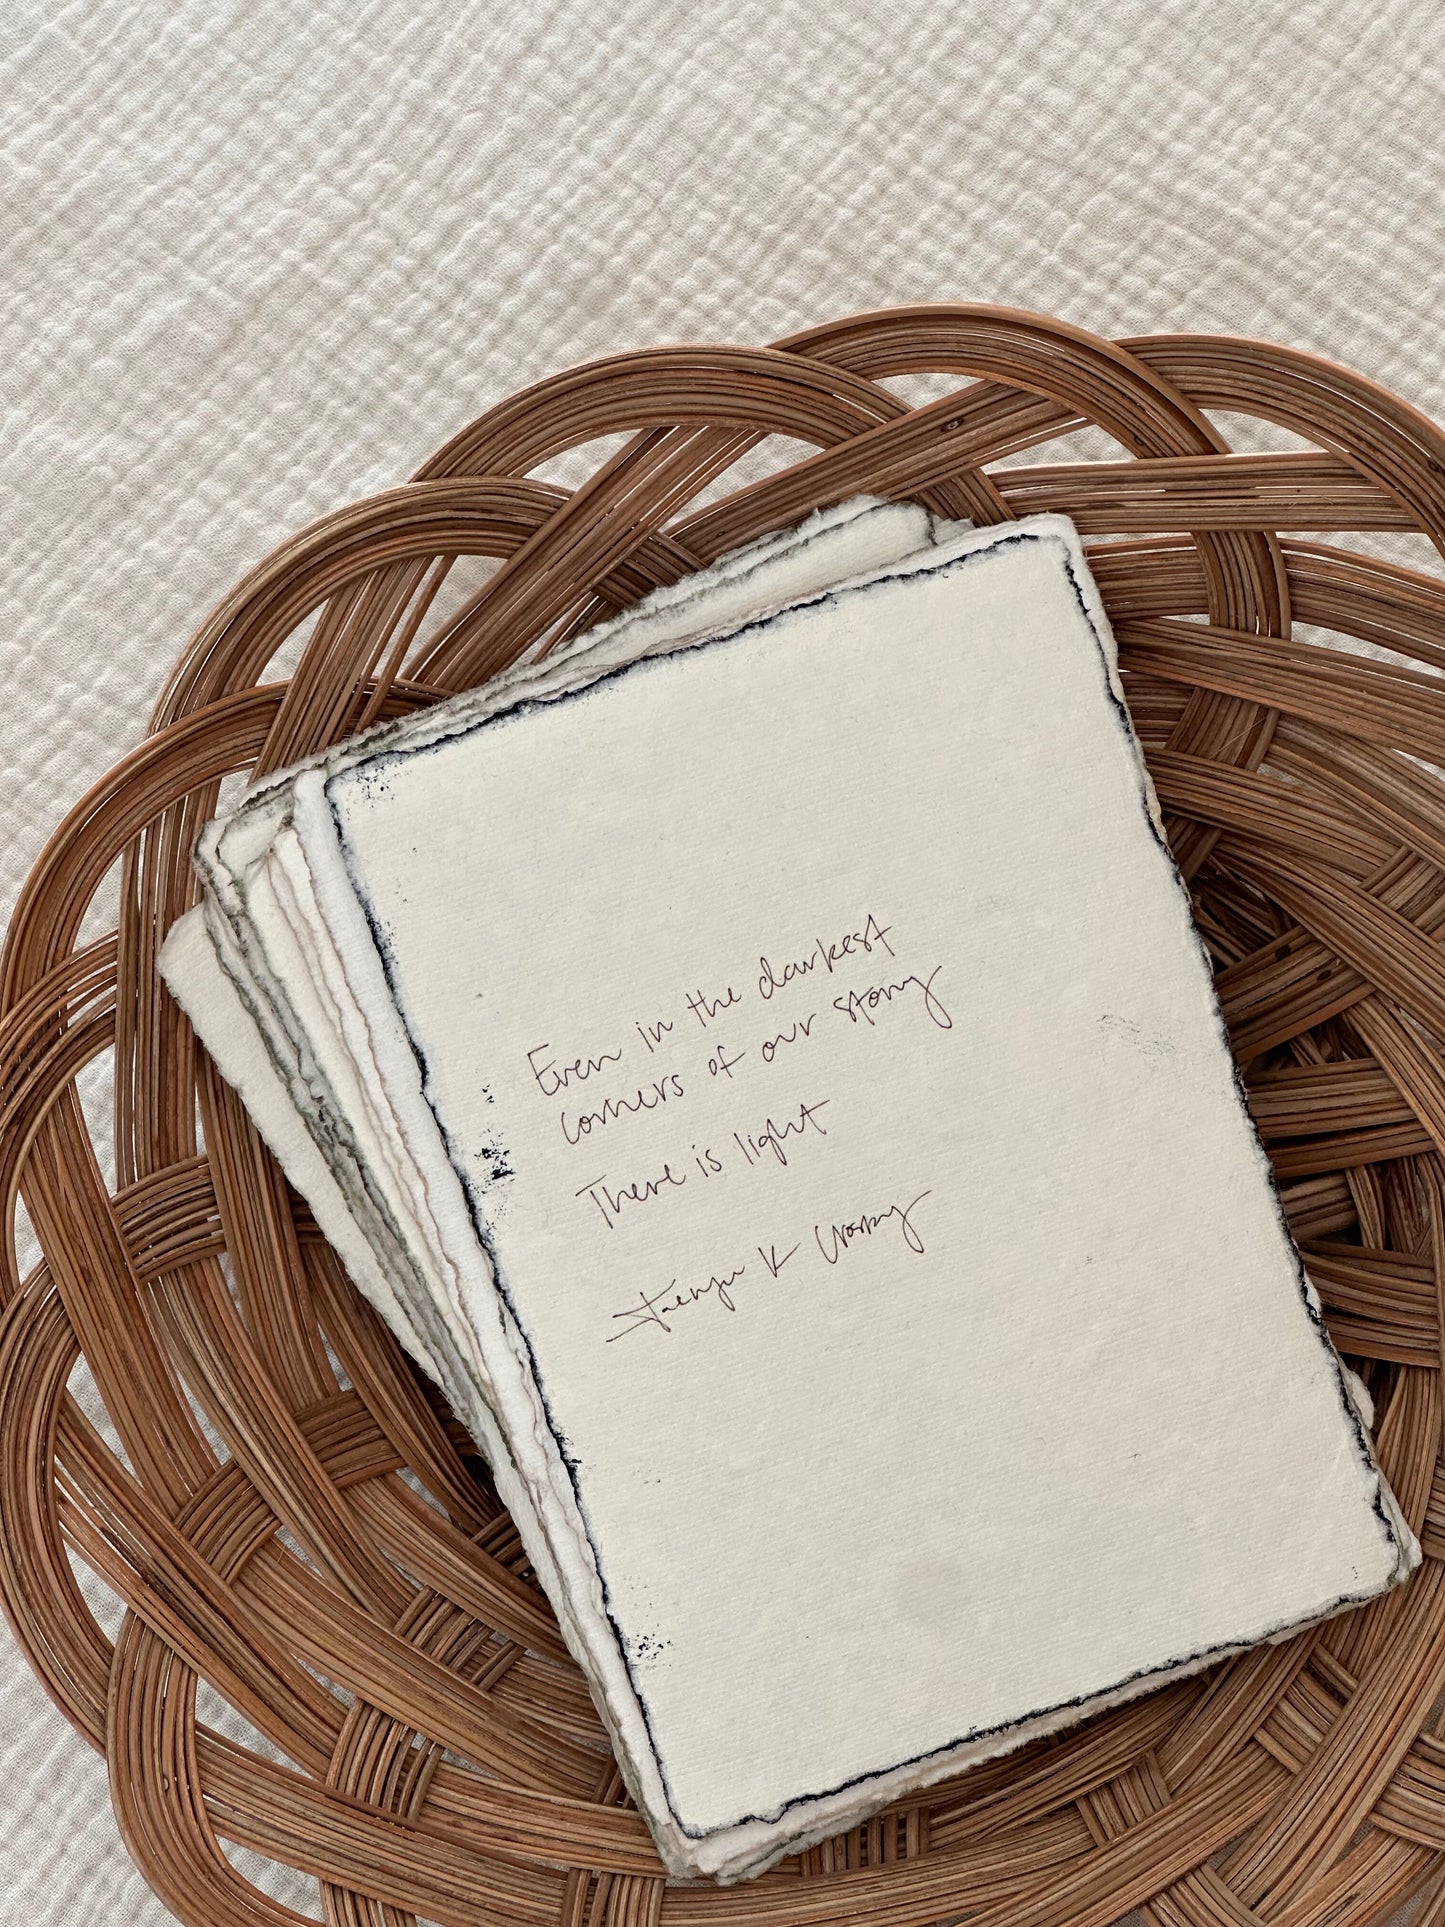 Even in the darkest
corners of our story
There is light
K Crosby